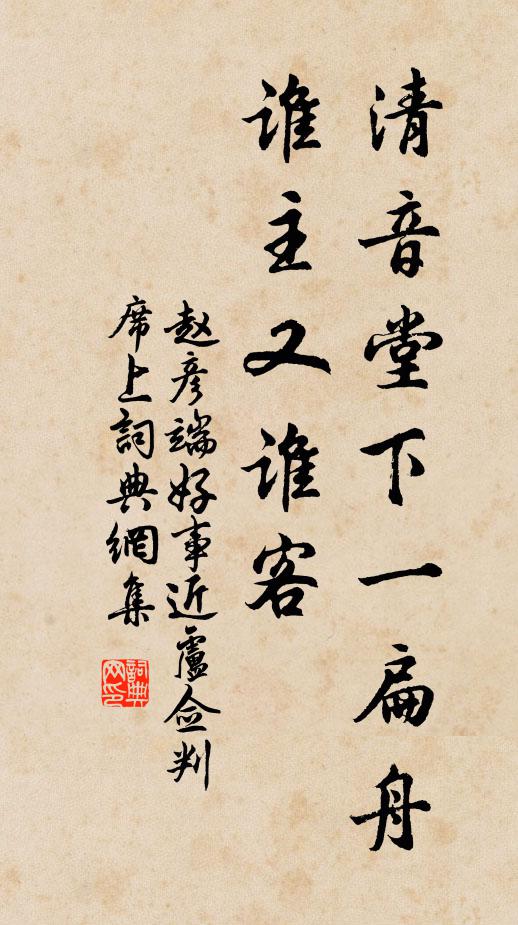 清音堂下一扁舟
谁主又谁客
赵彦端好事近卢佥判
席上詞典網集
詞典
网印